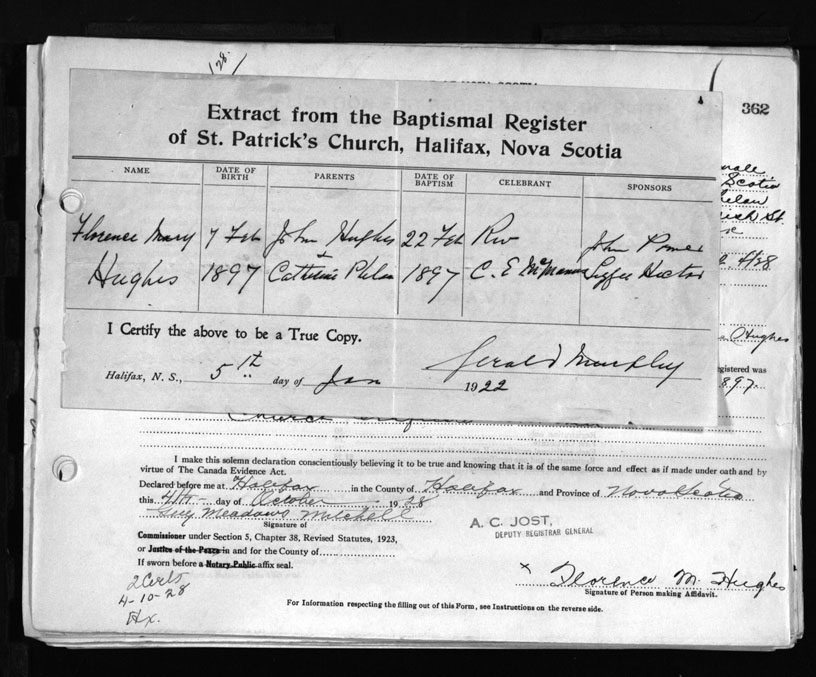 362
Extract from the Baptismal Register
of St. Patrick's Church, Halifax, Nova Scotia
NAME DATE OF BIRTH PARENTS DATE OF BAPTISM CELEBRANT SPONSORS
Florence Mary 7 Feb John Hughes 22 Feb Rev John Power
Hughes 1897 + Catherine 1897 C. E. McManus Hector
Scotia
Hughes
I Certify the above to be a True Copy.
Halifax, N. S., 5th day of Jan 1922 Gerald Murphy
registered was
1897.
Church
I make this solemn declaration conscientiously believing it to be true and knowing that it is of the same force and effect as if made under oath and by
virtue of The Canada Evidence Act.
Declared before me at Halifax in the County of Halifax and Province of Nova Scotia
this 4th day of October 1928
Guy Meadows Mitchel
Signature of
A. C. JOST,
DEPUTY REGISTRAR GENERAL
Commissioner under Section 5, Chapter 38, Revised Statutes, 1923,
or Justice of the Peace in and for the County of
If sworn before a Notary Public affix seal.
x Florence M. Hughes
Signature of Person making Affidavit.
2 Certs
4-10-28
Hx.
For Information respecting the filling out of this Form, see Instructions on the reverse side.